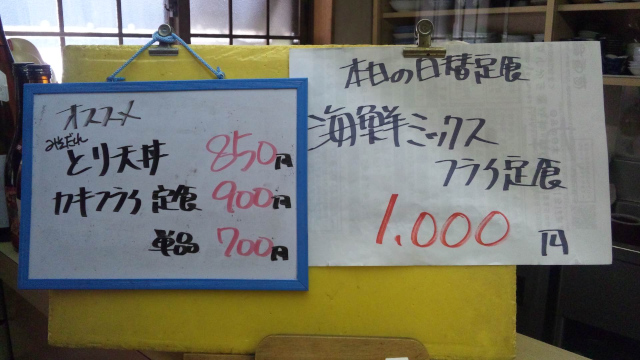 オススメ
みそだれ
とり天丼 850円
カキフライ定食 900円
単品 700円
本日の日替定食
海鮮ミックス
フライ定食
1.000円